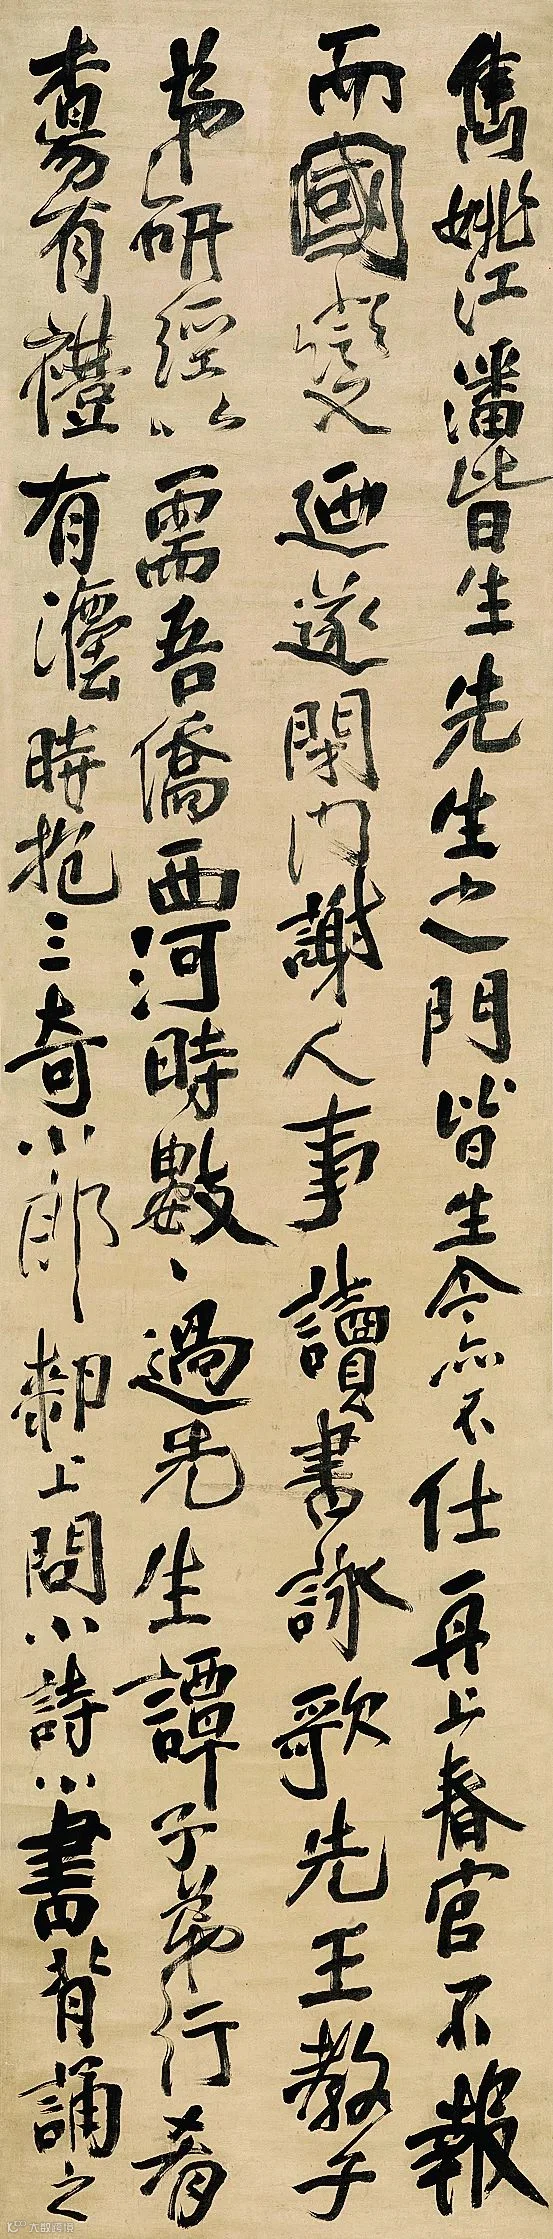 雋姚江潘皆生先生之門皆生令亦不仕再上春官不報
而國變廼遂閉門謝人事讀書詠歌先王教子
弟研經以需吾僑西河時數〻過先生譚子弟行有
有禮有灋時抱三奇小郎郗上問小詩小書背誦之
大数跨境